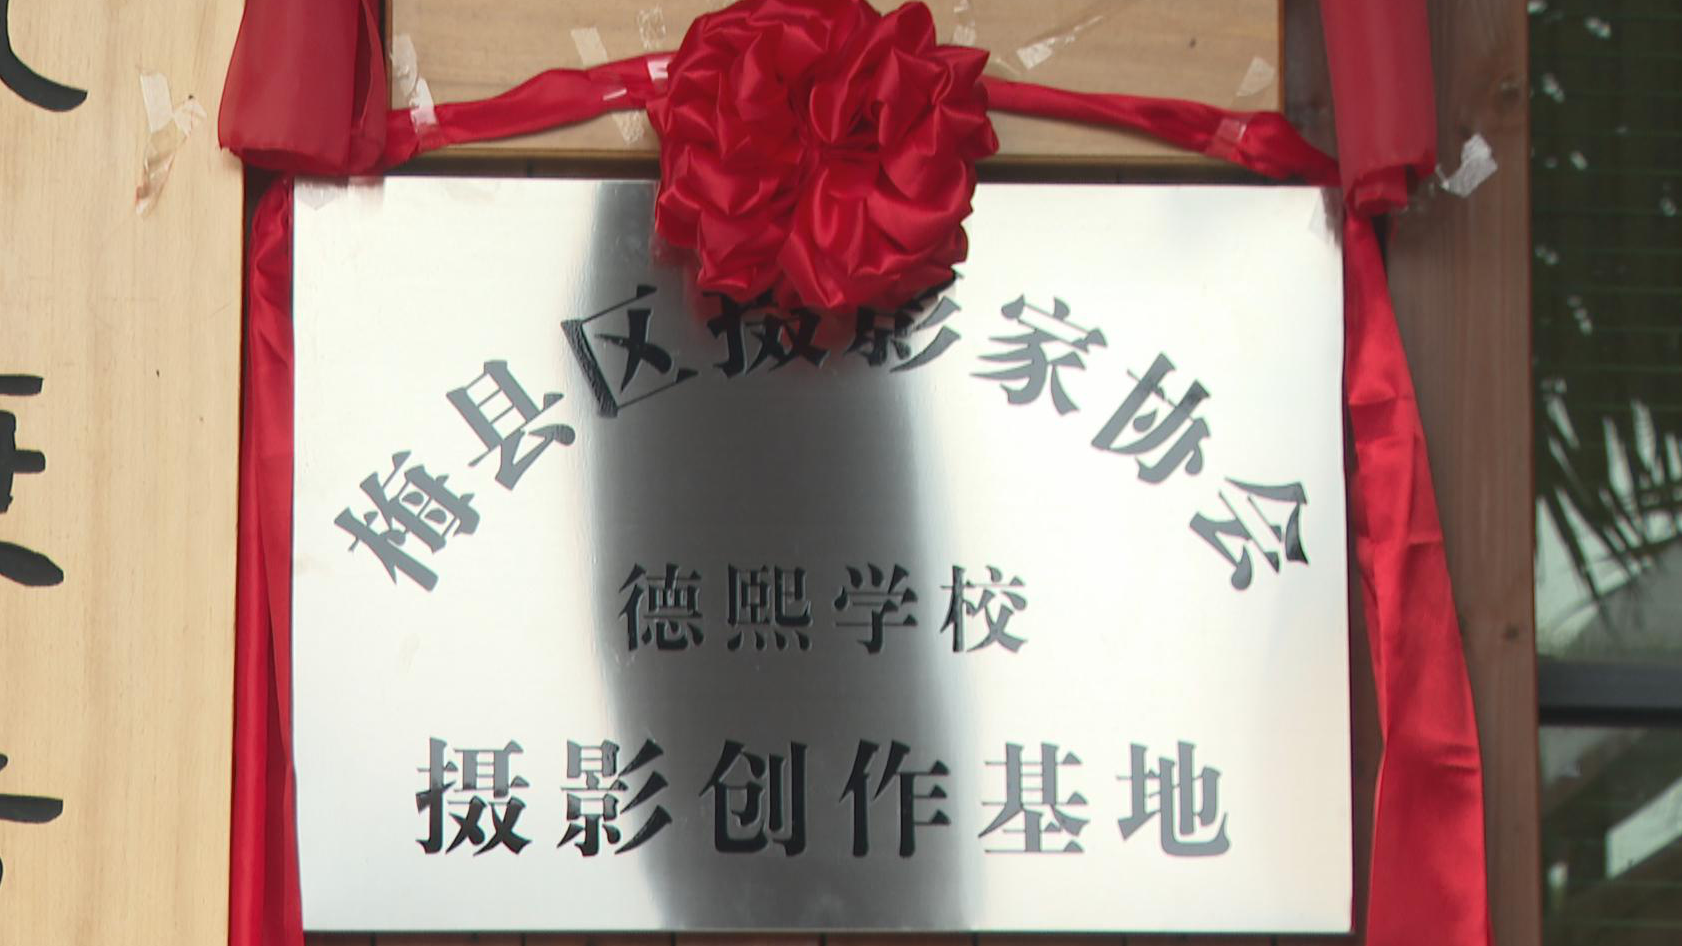 梅县区摄影家协会
德熙学校
摄影创作基地